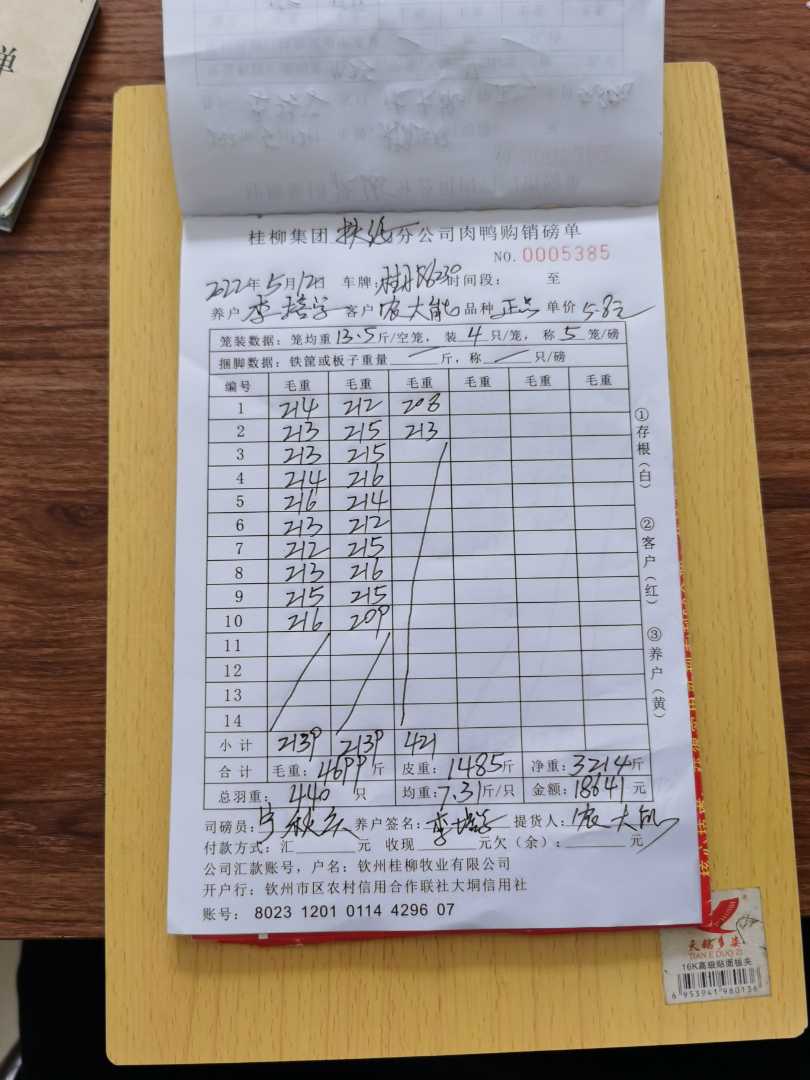 单
桂柳集团 扶绥 分公司肉鸭购销磅单
NO. 0005385
2022年5月12日 车牌: 时间段: 至
养户 李培学 客户 农大能 品种 正品 单价 5.8元
笼装数据: 笼均重 13.5 斤/空笼, 装 4 只/笼, 称 5 笼/磅
捆脚数据: 铁筐或板子重量 — 斤, 称 — 只/磅
编号 毛重 毛重 毛重 毛重 毛重 毛重
1 214 212 208
2 213 215 213
3 213 215
4 214 216
5 216 214
6 213 212
7 212 215
8 213 216
9 215 215
10 216 209
11
12
13
14
小计 2139 2139 421
合计 毛重: 4699 斤 皮重: 1485 斤 净重: 3214 斤
总羽重: 440 只 均重: 7.31 斤/只 金额: 18641 元
司磅员: 养户签名: 李培学 提货人: 农大能
付款方式: 汇 元 收现 元欠(余): 元
公司汇款账号, 户名: 钦州桂柳牧业有限公司
开户行: 钦州市区农村信用合作联社大垌信用社
账号: 8023 1201 0114 4296 07
①存根(白)
②客户(红)
③养户(黄)
天鹅多姿
TIAN E DUO ZI
16K高级贴面板夹
6 953941 980136